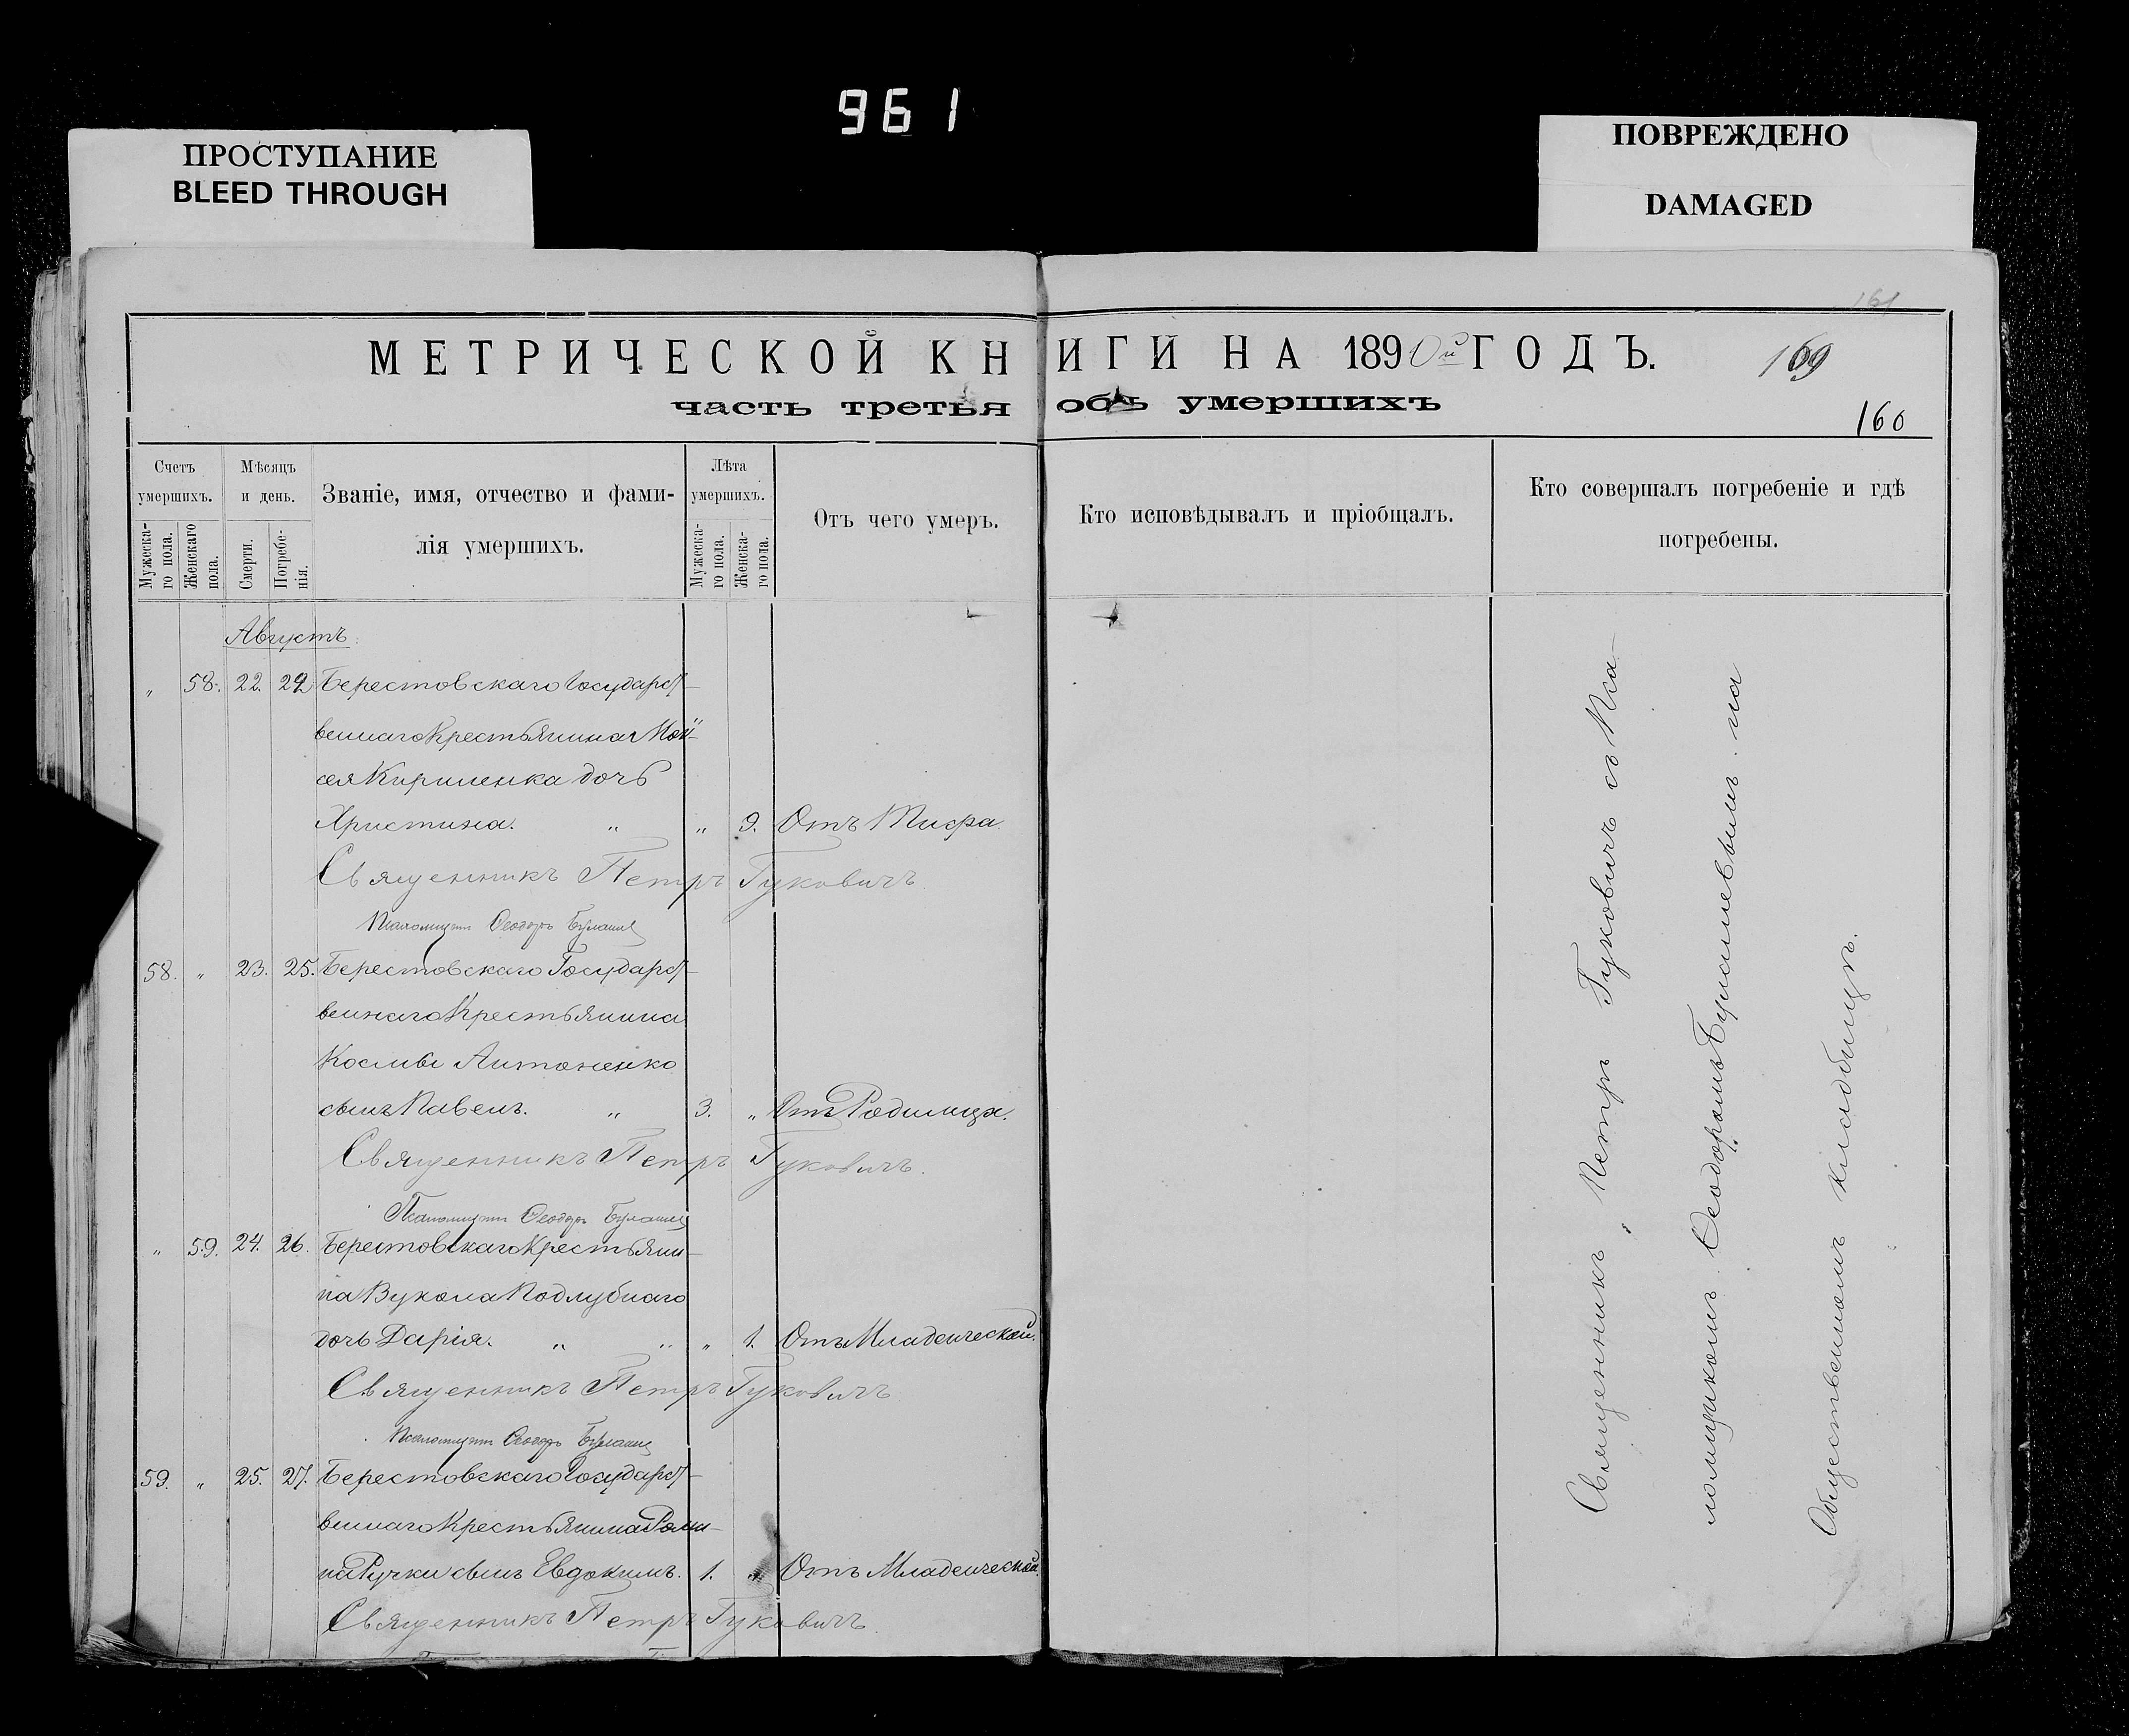 961
ПРОСТУПАНИЕ
BLEED THROUGH
ПОВРЕЖДЕНО
DAMAGED
161
МЕТРИЧЕСКОЙ КНИГИ НА 1890й ГОДЪ.
169
часть третья объ умершихъ
160
Счетъ умершихъ.
Мужеска-го пола.
Женскаго пола.
Мѣсяцъ и день.
Смерти.
Погребе-нія.
Званіе, имя, отчество и фами-
лія умершихъ.
Лѣта умершихъ.
Мужеска-го пола.
Женска-го пола.
Отъ чего умеръ.
Кто исповѣдывалъ и пріобщалъ.
Кто совершалъ погребеніе и гдѣ
погребены.
Августъ.
„ 58. 22. 22 Берестовскаго Государст-
веннаго Крестьянина Мои-
сея Кириленка дочь
Христина. „ „ 9. Отъ Тифа.
Священникъ Петръ Гуковичъ.
Псаломщикъ Ѳеодоръ
58. „ 23. 25. Берестовскаго Государст-
веннаго Крестьянина
Космы Антоненко
сынъ Павелъ. „ 3. „ Отъ Родимца.
Священникъ Петръ Гуковичъ.
Псаломщикъ Ѳеодоръ
„ 59. 24. 26. Берестовскаго Крестьяни-
на Вукола Подлубнаго
дочь Дарія. „ „ „ 1. Отъ Младенческой.
Священникъ Петръ Гуковичъ
Псаломщикъ Ѳеодоръ
59. „ 25. 27. Берестовскаго Государст-
веннаго Крестьянина Рома-
на Ручки сынъ Евдокимъ. 1. „ Отъ Младенческой.
Священникъ Петръ Гуковичъ.
Священникъ Петръ Гуковичъ съ Пса-
ломщикомъ Ѳеодоромъ на
Общественномъ кладбищѣ.